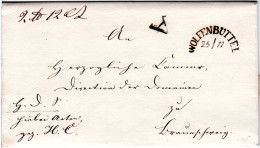 2 ℔ 12 Lt
WOLFENBÜTTEL
25/11
An
Herzogliche Kammer,
Direction der Domainen
zu
Braunschweig
H. D. S.
hiebei Acten